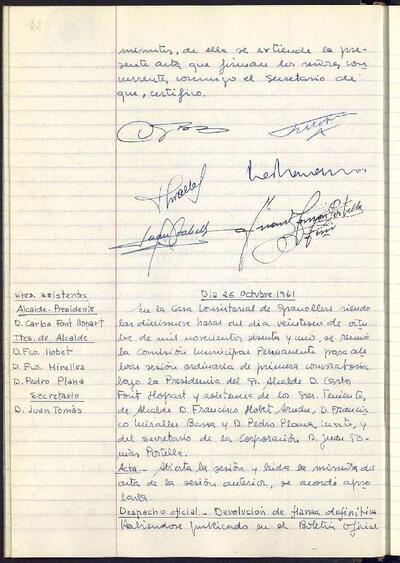 minutos, de ella se extiende la pre-
sente acta que firman los señores con
currentes, conmigo el Secretario de
que, certifico.
Sres. asistentes
Alcalde-Presidente
D. Carlos Font Llopart
Ttes. de Alcalde
D. Fco. Llobet
D. Fco. Miralles
D. Pedro Plana
Secretario
D. Juan Tomás
Dia 26 Octubre 1961
En la Casa Consistorial de Granollers siendo
las diecinueve horas del dia, veintiseis de octu
bre de mil novecientos sesenta y uno, se reunió
la Comisión Municipal Permanente para cele
brar sesión ordinaria de primera convocatoria
bajo la Presidencia del Sr. Alcalde D. Carlos
Font Llopart y asistencia de los Sres. Tenientes
de Alcalde D. Francisco Llobet D. Francis
co Miralles Bassa y D. Pedro Planas y
del Secretario de la Corporación D. Juan To-
más Portella.
Acta.- Abierta la sesión y leida la minuta del
acta de la sesión anterior, se acordó apro-
barla
Despacho oficial.- Devolucion de fianza definitiva
Habiendose publicado en el Boletin Oficial